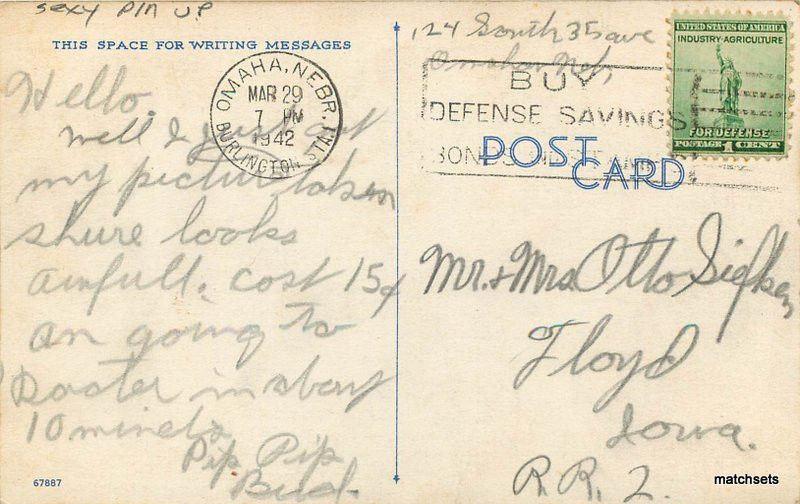 sexy PIN UP
THIS SPACE FOR WRITING MESSAGES
Hello.
Well I just got
my picture taken
shure looks
awfull. cost 15¢
an going to
in about
10 minets
Pip Pip
Bud.
67887
OMAHA, NEBR.
MAR 29
7 PM
1942
BURLINGTON STA.
124 South 35 ave
Omaha Neb,
BUY
DEFENSE SAVINGS
BONDS
UNITED STATES OF AMERICA
INDUSTRY-AGRICULTURE
FOR DEFENSE
POSTAGE 1 CENT
POST
CARD
Mr. & Mrs Otto Siefken
Floyd
Iowa.
R.R. 2.
matchsets